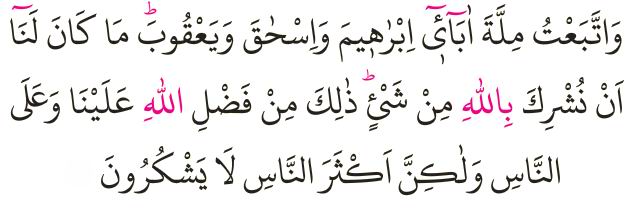 وَاتَّبَعْتُ مِلَّةَ اٰبَآءِیْۤ اِبْرٰهِیْمَ وَاِسْحٰقَ وَیَعْقُوْبَ ؕ مَا كَانَ لَنَاۤ
اَنْ نُّشْرِكَ بِاللّٰهِ مِنْ شَیْءٍ ؕ ذٰلِكَ مِنْ فَضْلِ اللّٰهِ عَلَیْنَا وَعَلَی
النَّاسِ وَلٰكِنَّ اَكْثَرَ النَّاسِ لَا یَشْكُرُوْنَ